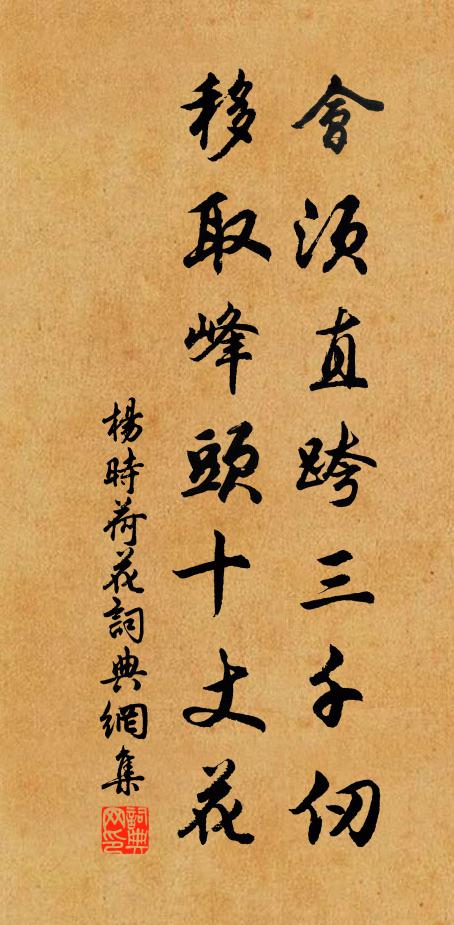 會須直跨三千仞
移取峰頭十丈花
楊時荷花詞典網集
詞典网印